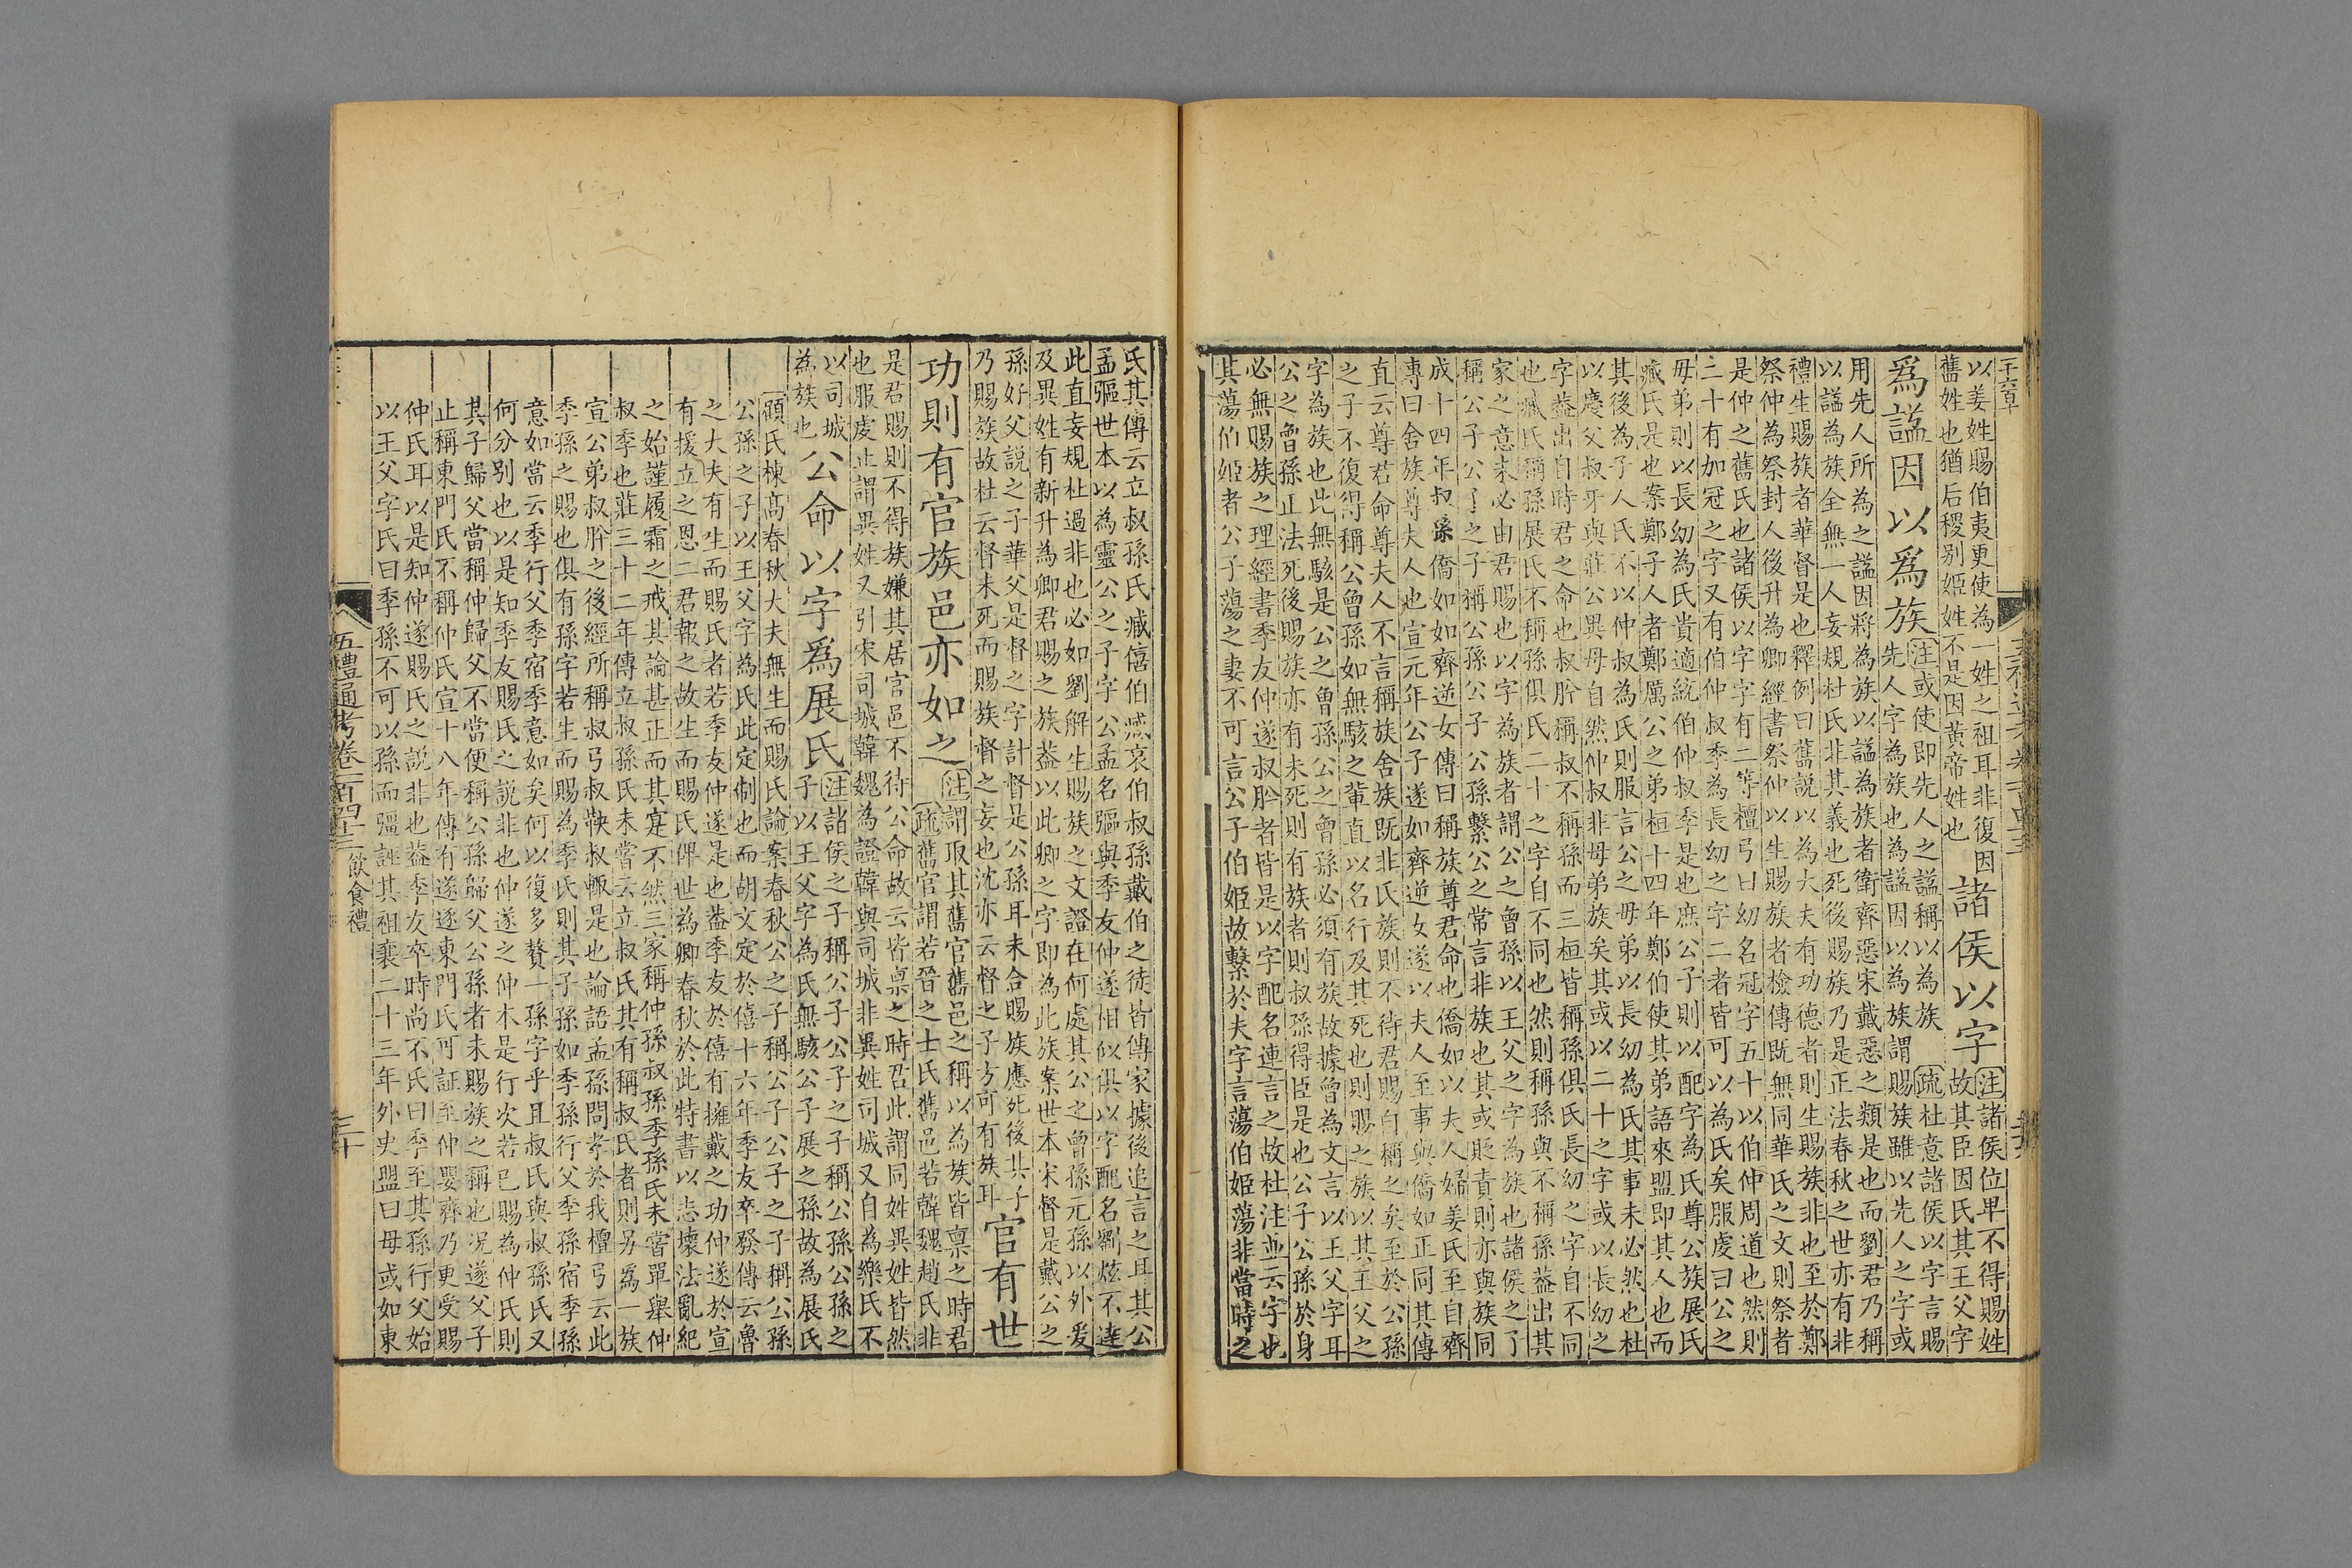 王六百二十
以姜姓賜伯夷更使為一姓之祖耳非復因
舊姓也猶后稷別姬姓不是因黃帝姓也
諸侯以字
注諸侯位卑不得賜姓
故其臣因氏其王父字
爲諡因以爲族
注或使即先人之諡稱以為族 疏杜意諸侯以字言賜
先人字為族也為諡因以為族謂賜族雖以先人之字或
用先人所為之諡因將為族以諡為族者衛齊惡宋戴惡之類是也而劉君乃稱
以諡為族全無一人妄規杜氏非其義也死後賜族乃是正法春秋之世亦有非
禮生賜族者華督是也釋例曰舊說以為大夫有功德者則生賜族非也至於鄭
祭仲為祭封人後升為卿經書祭仲以生賜族者檢傳既無同華氏之文則祭者
是仲之舊氏也諸侯以字字有二等檀弓曰幼名冠字五十以伯仲周道也然則
二十有加冠之字又有伯仲叔季為長幼之字二者皆可以為氏矣服虔曰公之
毋弟則以長幼為氏貴適統伯仲叔季是也庶公子則以配字為氏尊公族展氏
臧氏是也案鄭子人者鄭厲公之弟桓十四年鄭伯使其弟語來盟即其人也而
其後為子人氏不以仲叔為氏則服言公之毋弟以長幼為氏其事未必然也杜
以慶父叔牙與莊公異毋自然仲叔非毋弟族矣其或以二十之字或以長幼之
字蓋出自時君之命也叔肸稱叔不稱孫而三桓皆稱孫俱氏長幼之字自不同
也臧氏稱孫展氏不稱孫俱氏二十之字自不同也然則稱孫與不稱孫蓋出其
家之意未必由君賜也以字為族者謂公之曾孫以王父之字為族也諸侯之子
稱公子公子之子稱公孫公子公孫繫公之常言非族也其或貶責則亦與族同
成十四年叔孫僑如如齊逆女傳曰稱族尊君命也僑如以夫人婦姜氏至自齊
傳曰舍族尊夫人也宣元年公子遂如齊逆女遂以夫人至事與僑如正同其傳
直云尊君命尊夫人不言稱族舍族既非氏族則不待君賜自稱之矣至於公孫
之子不復得稱公曾孫如無駭之輩直以名行及其死也則賜之族以其王父之
字為族也此無駭是公之曾孫公之曾孫必須有族故據曾為文言以王父字耳
公之曾孫正法死後賜族亦有未死則有族者則叔孫得臣是也公子公孫於身
必無賜族之理經書季友仲遂叔肸者皆是以字配名連言之故杜注並云字也
其蕩伯姬者公子蕩之妻不可言公子伯姬故繫於夫字言蕩伯姬蕩非當時之
氏其傳云立叔孫氏臧僖伯臧哀伯叔孫戴伯之徒皆傳家據後追言之耳其公
孟彄世本以為靈公之子字公孟名彄與季友仲遂相似俱以字配名劉炫不達
此直妄規杜過非也必如劉解生賜族之文證在何處其公之曾孫元孫以外爰
及異姓有新升為卿君賜之族蓋以此卿之字即為此族案世本宋督是戴公之
孫好父說之子華父是督之字計督是公孫耳未合賜族應死後其子
乃賜族故杜云督未死而賜族督之妄也沈亦云督之子方可有族耳
官有世
功則有官族邑亦如之
注謂取其舊官舊邑之稱以為族皆稟之時君
疏舊官謂若晉之士氏舊邑若韓魏趙氏非
是君賜則不得族嫌其居官邑不待公命故云皆稟之時君此謂同姓異姓皆然
也服虔止謂異姓又引宋司城韓魏為證韓與司城非異姓司城又自為樂氏不
以司城
為族也
公命以字爲展氏
注諸侯之子稱公子公子之子稱公孫公孫之
子以王父字為氏無駭公子展之孫故為展氏
顧氏棟高春秋大夫無生而賜氏論案春秋公之子稱公子公子之子稱公孫
公孫之子以王父字為氏此定制也而胡文定於僖十六年季友卒發傳云魯
之大夫有生而賜氏者若季友仲遂是也蓋季友於僖有擁戴之功仲遂於宣
有援立之恩二君報之故生而賜氏俾世為卿春秋於此特書以志壞法亂紀
之始謹履霜之戒其論甚正而其寔不然三家稱仲孫叔孫季孫氏未嘗單舉仲
叔季也莊三十二年傳立叔孫氏未嘗云立叔氏其有稱叔氏者則另為一族
宣公弟叔肸之後經所稱叔弓叔鞅叔輒是也論語孟孫問孝於我檀弓云此
季孫之賜也俱有孫字若生而賜為季氏則其子孫如季孫行父季孫宿季孫
意如當云季行父季宿季意如矣何以復多贅一孫字乎且叔氏與叔孫氏又
何分別也以是知季友賜氏之說非也仲遂之仲本是行次若已賜為仲氏則
其子歸父當稱仲歸父不當便稱公孫歸父公孫者未賜族之稱也况遂父子
止稱東門氏不稱仲氏宣十八年傳有遂逐東門氏可証至仲嬰齊乃更受賜
仲氏耳以是知仲遂賜氏之說非也蓋季友卒時尚不氏曰季至其孫行父始
以王父字氏曰季孫不可以孫而彊誣其祖襄二十三年外史盟曰毋或如東
五禮通考卷一百四十三 飲食禮
三十